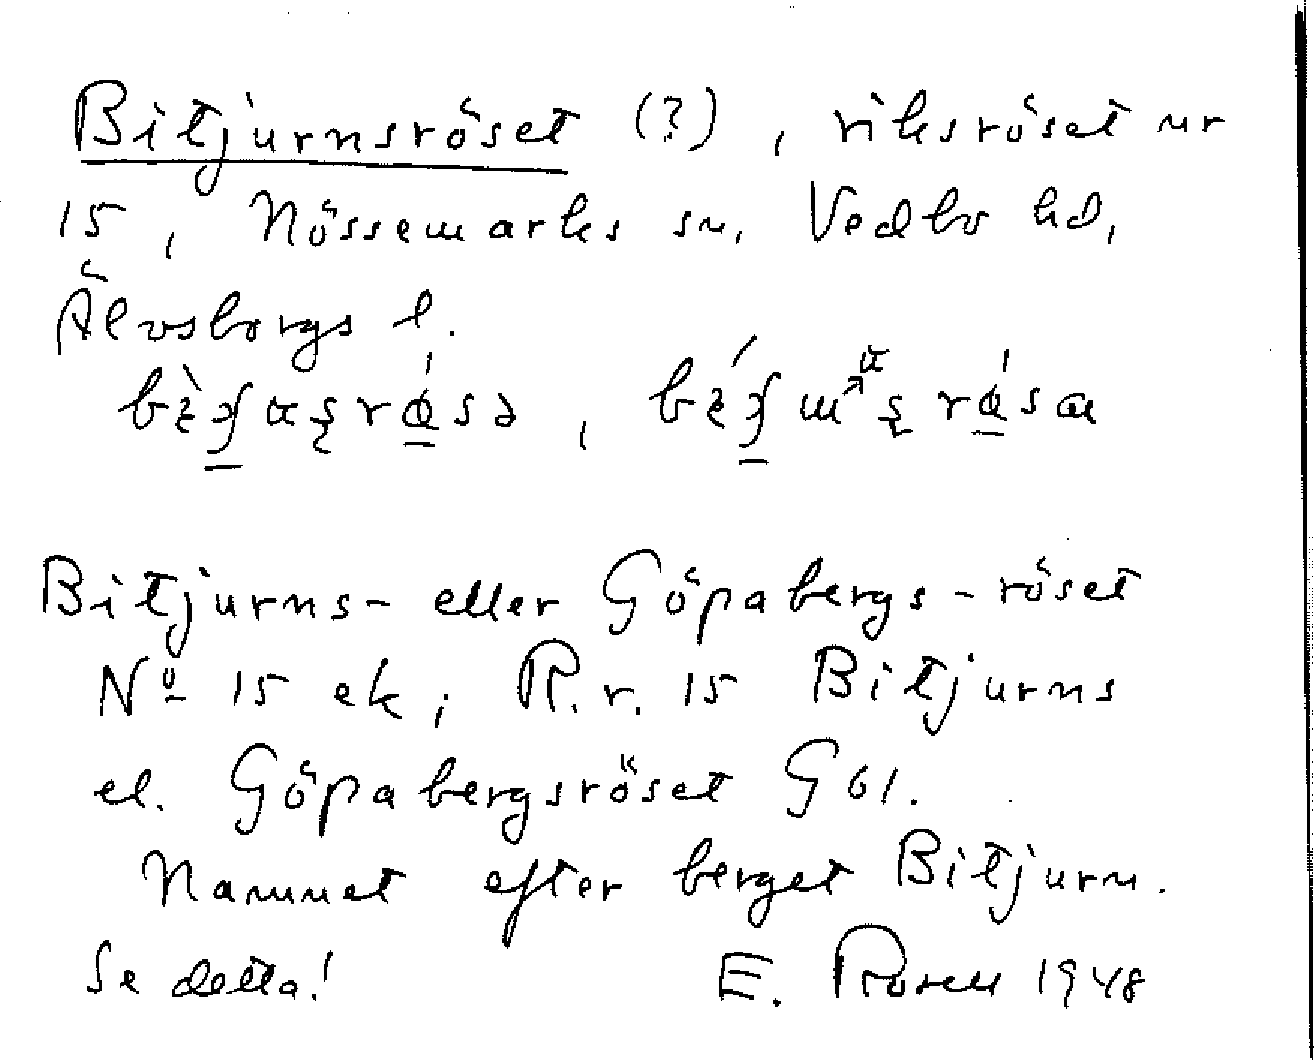 Bitjurnsröset (?), riksröset nr
15, Nössemarks sn, Vedbo hd,
Älvsborgs l.
Bitjurns- eller Göpabergs-röset
Nº 15 ek; R.r. 15 Bitjurns
el. Göpabergsröset G 61.
Namnet efter berget Bitjurn.
Se detta! E. Rosell 1948